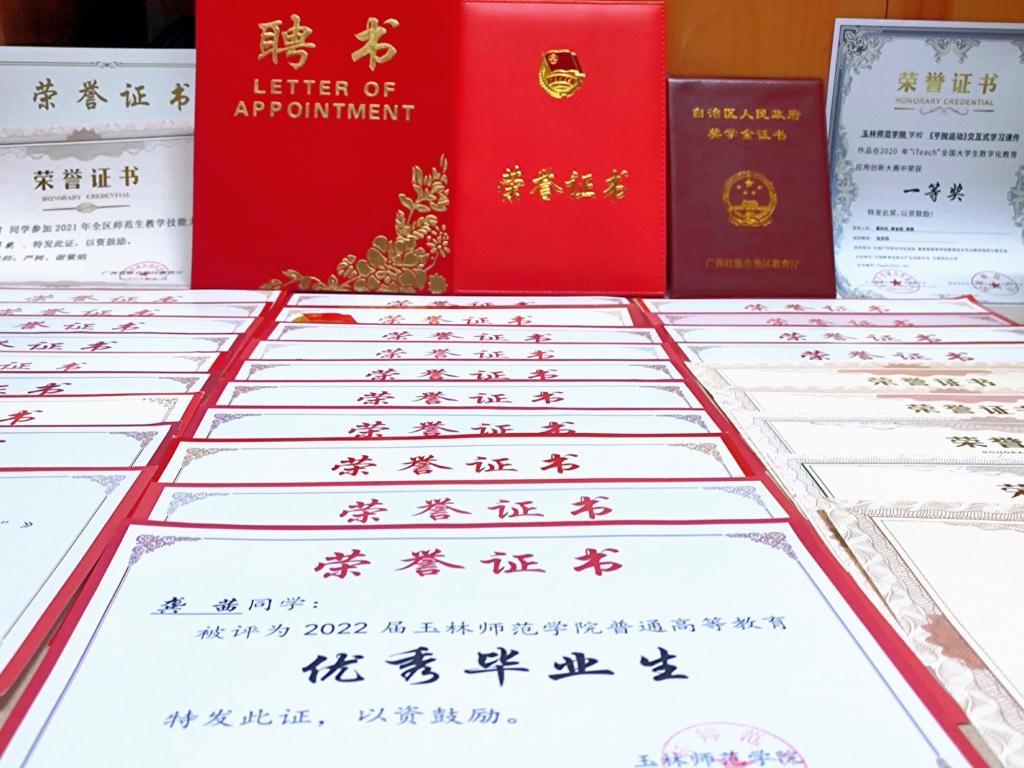 荣誉证书
荣誉证书
HONORARY CREDENTIAL
同学参加 2021 年全区师范生教学技能
特发此证，以资鼓励。
严柯、谢紫娟
聘书
LETTER OF
APPOINTMENT
荣誉证书
自治区人民政府
奖学金证书
广西壮族自治区教育厅
荣誉证书
HONORARY CREDENTIAL
玉林师范学院 学校 《平抛运动》交互式学习课件
作品在2020 年"iTeach"全国大学生数字化教育
应用创新大赛中荣获
一等奖
特发此奖，以资鼓励！
荣誉证书
荣誉证书
荣誉证书
荣誉证书
证书
证书
书
荣誉证书
荣誉证书
荣誉证书
荣誉证书
荣誉证书
荣誉证书
荣誉证书
荣誉证书
荣誉证书
荣誉证书
荣誉证书
荣誉证书
荣誉证书
荣誉证
荣誉
荣誉证书
龚茜同学：
被评为 2022 届玉林师范学院普通高等教育
优秀毕业生
特发此证，以资鼓励。
玉林师范学院